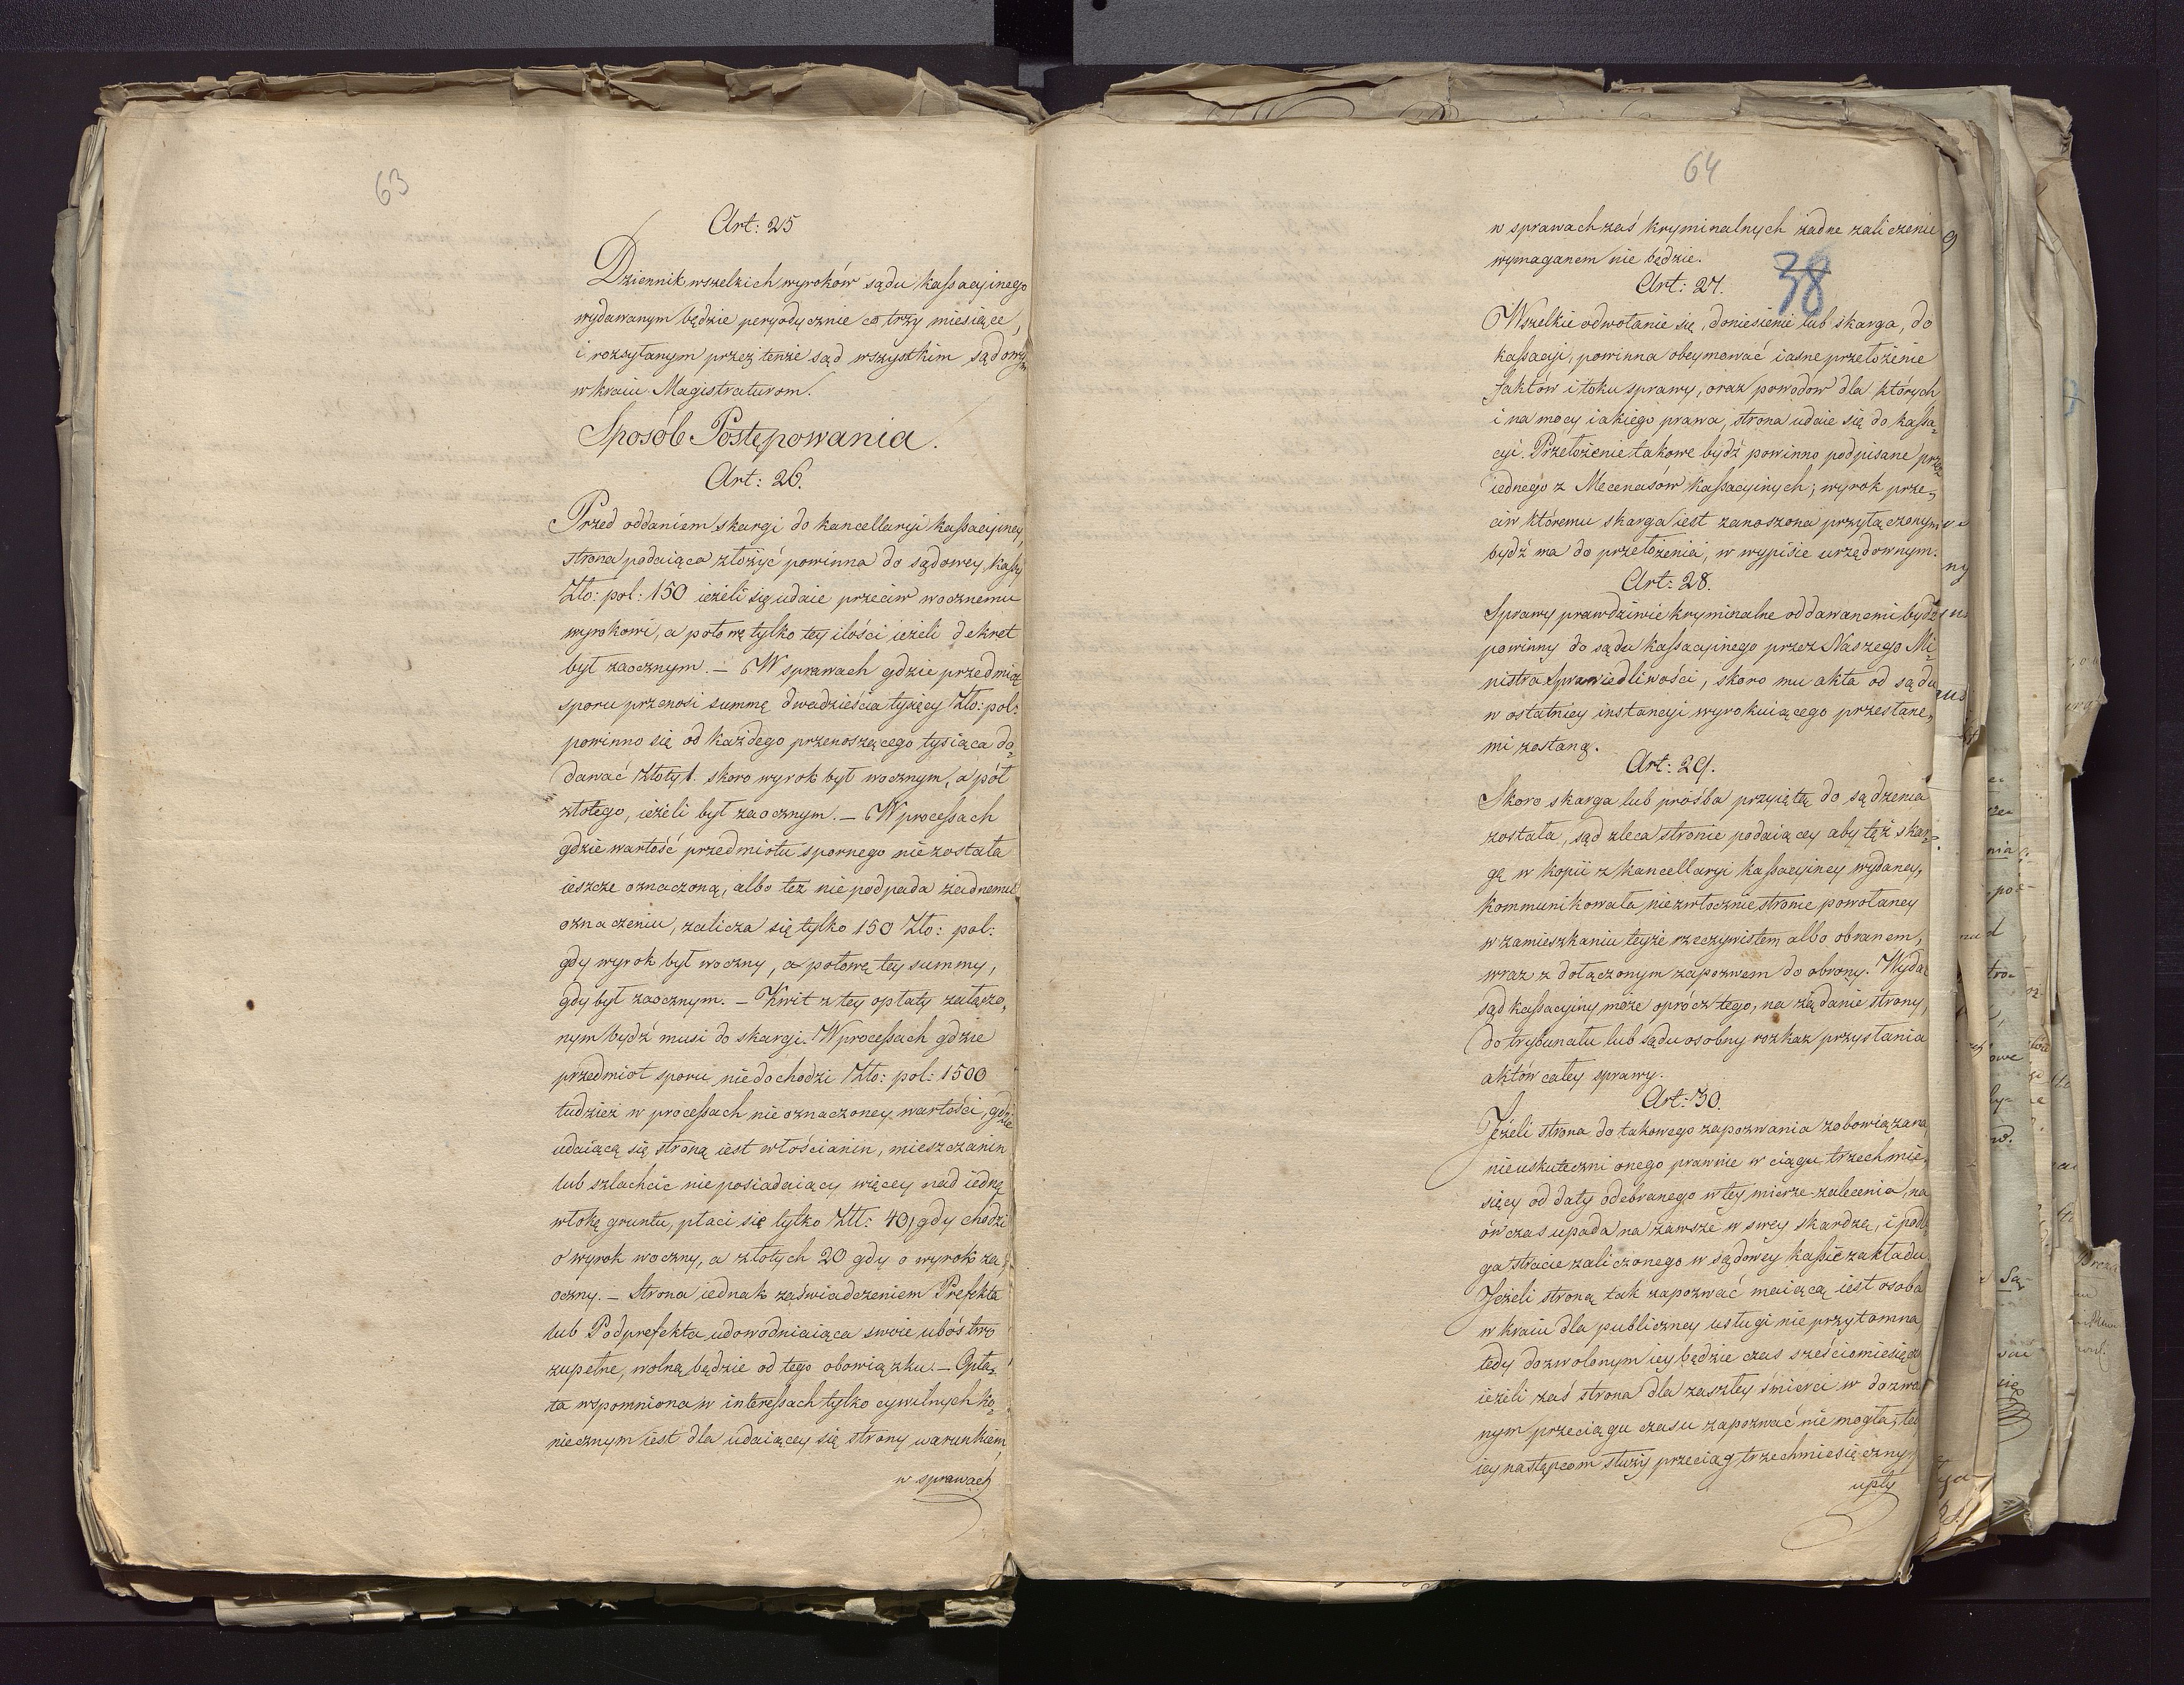 63
Art: 25
Dziennik wszelkich wyroków sądu kassacyinego
wydawanym będzie peryodycznie co trzy miesiące,
i rozsyłanym przez tenże sąd wszystkim sądowym
w kraiu Magistraturom.
Sposób Postępowania.
Art: 26.
Przed oddaniem skargi do kancellaryi kassacyiney,
strona podaiąca złożyć powinna do sądowey kassy
Zło: pol: 150 ieżeli się udaie przeciw wocznemu
wyrokowi, a połowę tylko tey ilości ieżeli dekret
był zaocznym. — W sprawach gdzie przedmiot
sporu przenosi summę dwadzieścia tysięcy Zło: pol:
powinno się od każdego przenoszącego tysiąca do=
dawać Złoty 1. skoro wyrok był wocznym, a pół
złotego, ieżeli był zaocznym. — W processach
gdzie wartość przedmiotu spornego nie została
ieszcze oznaczoną, albo też nie podpada żadnemu
oznaczeniu, zalicza się tylko 150 Zło: pol:
gdy wyrok był woczny, a połowę tey summy,
gdy był zaocznym. — Kwit z tey opłaty załączo=
nym bydź musi do skargi. W processach gdzie
przedmiot sporu nie dochodzi Zło: pol: 1500
tudzież w processach nie oznaczoney wartości, gdzie
udaiącą się stroną iest włościanin, mieszczanin
lub szlachcic nie posiadaiący więcey nad iedną
włokę gruntu, płaci się tylko Złł: 40, gdy chodzi
o wyrok woczny, a złotych 20 gdy o wyrok za=
oczny. — Strona iednak zaświadczeniem Prefekta
lub Podprefekta udowodniaiąca swoie ubóstwo
zupełne, wolną będzie od tego obowiązku. — Opła=
ta wspomniona w interessach tylko cywilnych ko=
niecznym iest dla udaiącey się strony warunkiem,
w sprawach
64
w sprawach zaś kryminalnych żadne zaliczenie
wymaganem nie będzie.
38
Art: 27.
Wszelkie odwołanie się, doniesienie lub skarga, do
kassacyi, powinna obeymować iasne przełożenie
faktów i toku sprawy, oraz powodów dla których
i na mocy iakiego prawa, strona udaie się do kassa=
cyi. Przełożenie takowe bydź powinno podpisane przez
iednego z Mecenasów kassacyinych; wyrok prze=
ciw któremu skarga iest zanoszona przyłączonym
bydź ma do przełożenia, w wypisie urzędownym.
Art: 28.
Sprawy prawdziwie kryminalne oddawanemi bydź
powinny do sądu kassacyinego przez Naszego Mi=
nistra Sprawiedliwości, skoro mu akta od sądu
w ostatniey instancyi wyrokuiącego przesłane=
mi zostaną.
Art: 29.
Skoro skarga lub prośba przyiętą do sądzenia
została, sąd zleca stronie podaiącey aby tęż skar=
gę w kopii z kancellaryi kassacyiney wydaney,
kommunikowała niezwłocznie stronie powołaney
w zamieszkaniu teyże rzeczywistem albo obranem,
wraz z dołączonym zapozwem do obrony. Wydać
sąd kassacyiny może oprócz tego, na żądanie strony,
do trybunału lub sądu osobny rozkaz przysłania
aktów całey sprawy.
Art: 30.
Jeżeli strona do takowego zapozwania zobowiązana
nieuskuteczni onego prawnie w ciągu trzech mie=
sięcy od daty odebranego w tey mierze zalecenia, na
ów czas upada na zawsze w swey skardze, i podle=
ga stracie zaliczonego w sądowey kassie zakładu.
Jeżeli stroną tak zapozwać maiącą iest osoba
w kraiu dla publiczney usługi nie przytomna,
tedy dozwolonym iey będzie czas sześciomiesięczny
ieżeli zaś strona dla zaszłey śmierci w dozwo=
nym przeciągu czasu zapozwać nie mogła, tedy
iey następcom służy przeciąg trzechmiesięczny,
upły